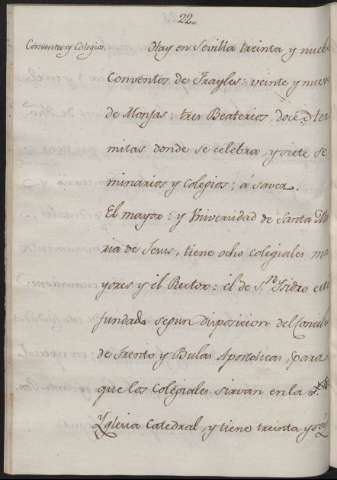 22.
Conventos y Colegios. Hay en Sevilla treinta y nueve
Conventos de Frayles: veinte y nueve
de Monjas: tres Beaterios, doce Her
mitas donde se celebra, y siete se
minarios y Colegios; á saver.
El mayor: y Universidad de Santa Ma
ria de Jesus, tiene ocho colegiales ma
yores y el Rector: el de Sn. Isidro està
fundado segun disposicion del Concilio
de Trento y Bulas Apostolicas, para
que los Colegiales sirvan en la Sta.
Yglesia Catedral, y tiene treinta y